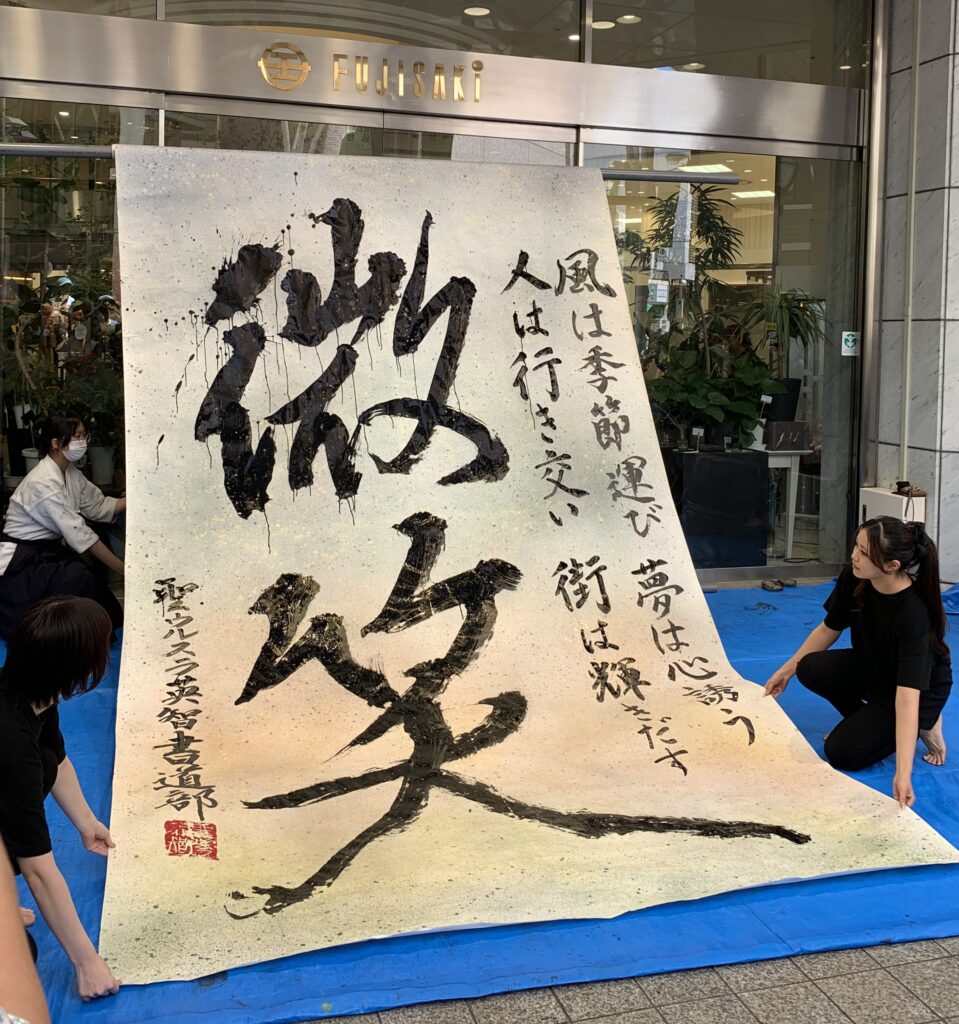 FUJISAKi
微笑
風は季節運び 夢は心誘う
人は行き交い 街は輝きだす
聖ウルスラ英智書道部